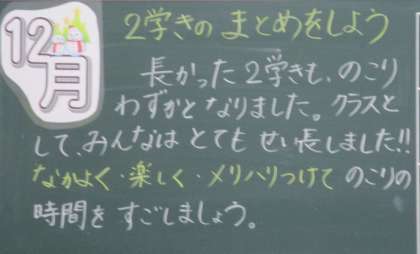 12月
2学きの まとめをしよう
長かった2学きも、のこり
わずかとなりました。クラスと
して、みんなは とても せい長しました!!
なかよく・楽しく・メリハリつけて のこりの
時間を すごしましょう。